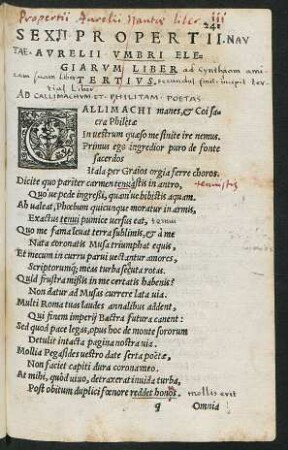 Propertii Aurelii Nautae liber iii
SEXTI PROPERTII NAV
TAE AVRELII VMBRI ELE
GIARVM LIBER ad Cynthiam ami
TERTIVS
AD CALLIMACHVM ET PHILITAM POETAS
CALLIMACHI manes, & Coi sa
cra Philetæ
In uestrum quæso me sinite ire nemus.
Primus ego ingredior puro de fonte
sacerdos
Itala per Graios orgia ferre choros.
Dicite quo pariter carmen tenuastis in antro,
Quo ue pede ingressi, quam ue bibistis aquam.
Ah ualeat, Phœbum quicunque moratur in armis,
Exactus tenui pumice uersus eat, tenui
Quo me fama leuat terra sublimis, & à me
Nata coronatis Musa triumphat equis,
Et mecum in curru parui uectantur amores,
Scriptorumq; meas turba secuta rotas.
Quid frustra missis in me certatis habenis?
Non datur ad Musas currere lata uia.
Multi Roma tuas laudes annalibus addent,
Qui finem imperij Bactra futura canent:
Sed quod pace legas, opus hoc de monte sororum
Detulit intacta pagina nostra uia.
Mollia Pegasides uestro date serta poetæ,
Non faciet capiti dura corona meo.
At mihi, quòd uiuo, detraxerat inuida turba,
Post obitum duplici fœnore reddet honos.
q Omnia